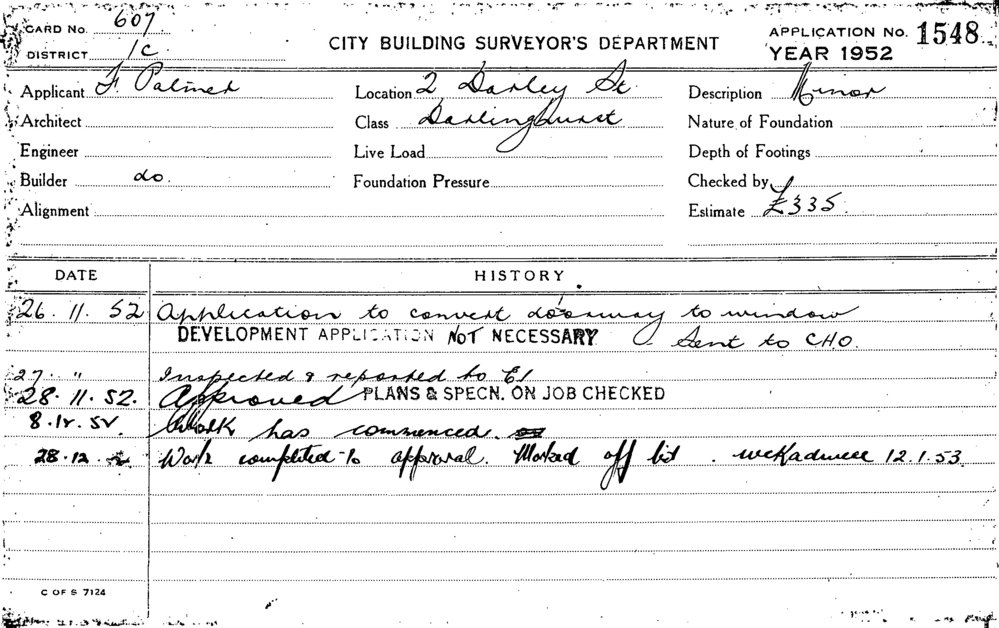 CARD No. 607
DISTRICT 1C
CITY BUILDING SURVEYOR'S DEPARTMENT
APPLICATION No. 1548
YEAR 1952
Applicant F. Palmer
Location 2 Darley St
Description Minor
Architect
Class Darlinghurst
Nature of Foundation
Engineer
Live Load
Depth of Footings
Builder do.
Foundation Pressure
Checked by
Alignment
Estimate £335.
DATE HISTORY
26. 11. 52 Application to convert doorway to window
DEVELOPMENT APPLICATION NOT NECESSARY Sent to CHO.
27. " Inspected & reported to
28. 11. 52. Approved PLANS & SPECN. ON JOB CHECKED
8. 12. 52. Work has commenced.
28.12. Work completed to approval. Marked off list. 12.1.53.
C OF S 7124